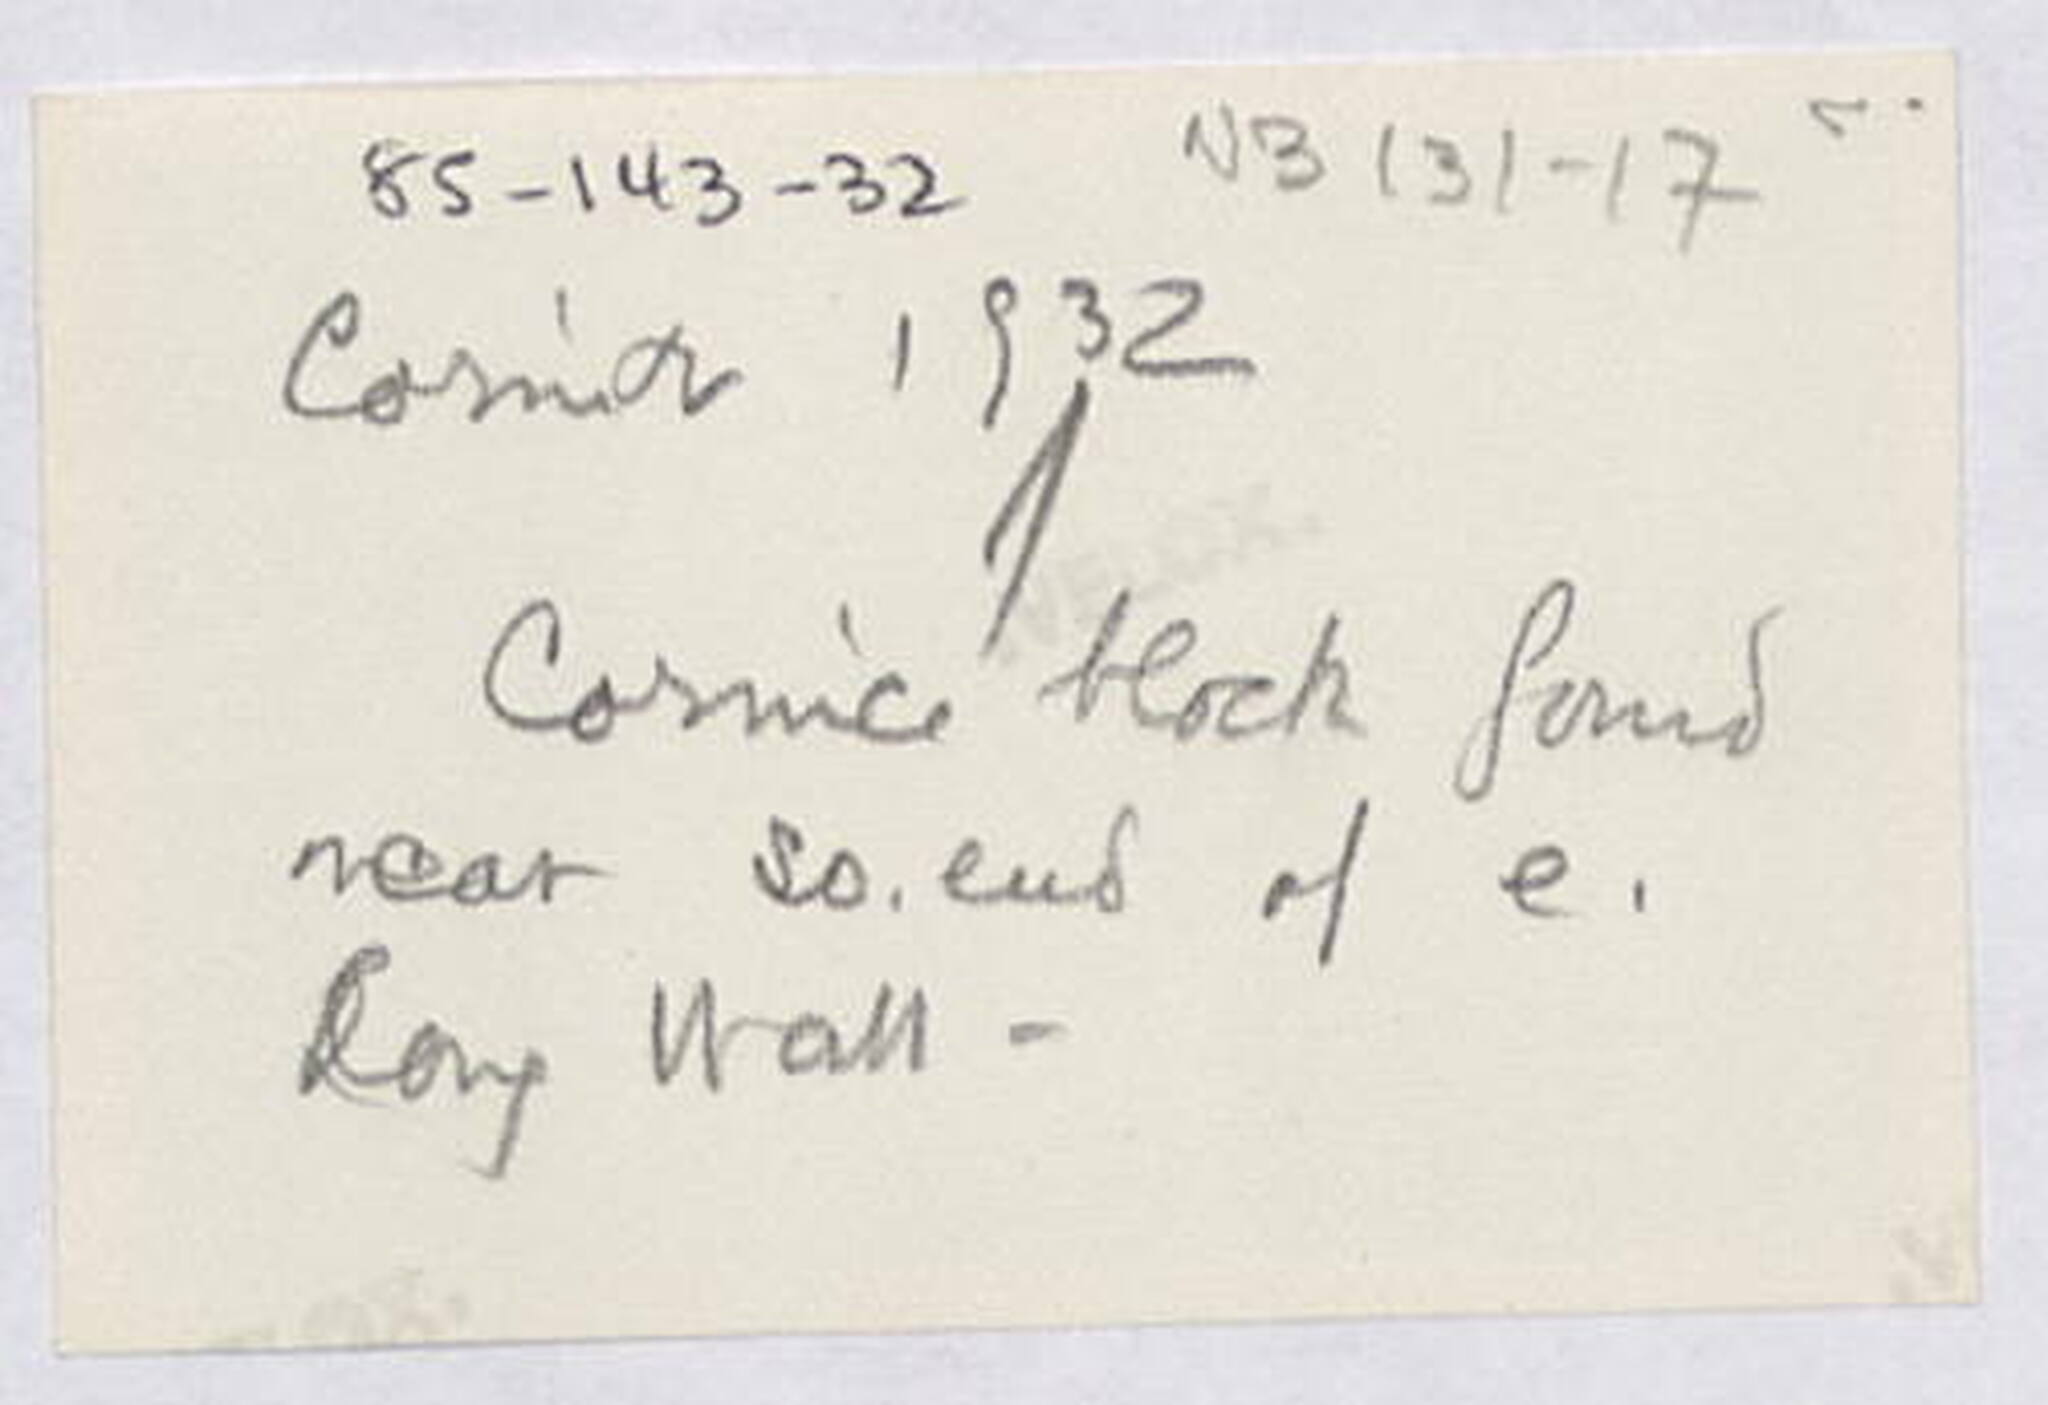 85-143-32 NB 131-17
Corinth 1932
Cornice block found
near so. end of e.
Long Wall -